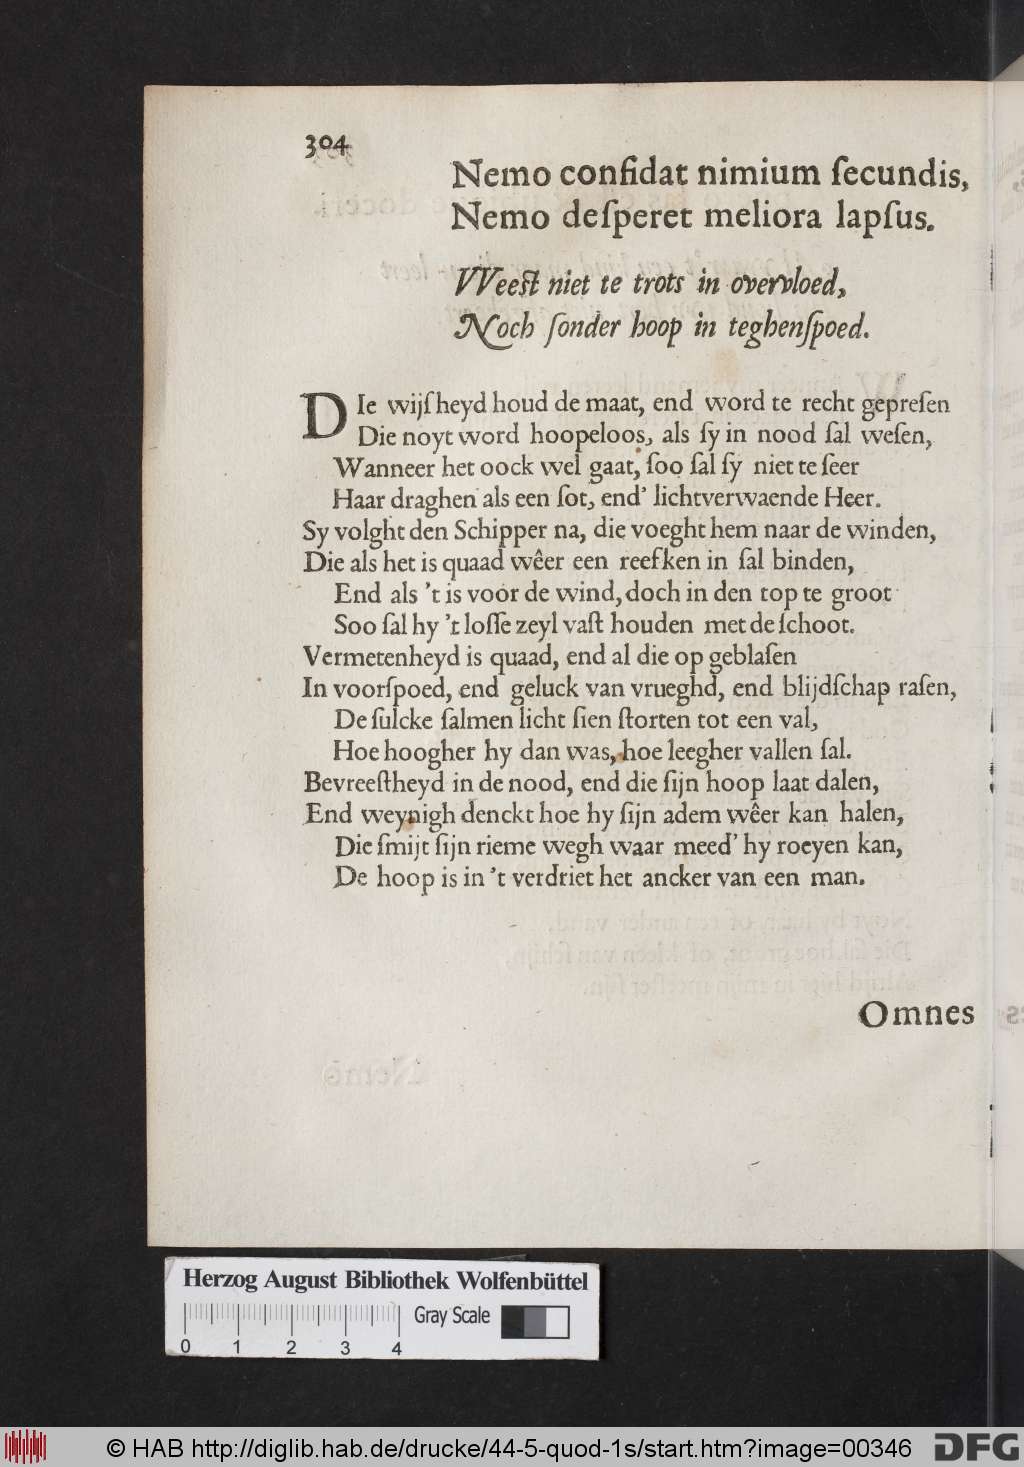 304
Nemo confidat nimium ſecundis,
Nemo deſperet meliora lapſus.
VVeeſt niet te trots in overvloed,
Noch ſonder hoop in teghenſpoed.
DIe wijſheyd houd de maat, end word te recht gepreſen
Die noyt word hoopeloos, als ſy in nood ſal weſen,
Wanneer het oock wel gaat, ſoo ſal ſy niet te ſeer
Haar draghen als een ſot, end' lichtverwaende Heer.
Sy volght den Schipper na, die voeght hem naar de winden,
Die als het is quaad wêer een reefken in ſal binden,
End als 't is voor de wind, doch in den top te groot
Soo ſal hy 't loſſe zeyl vaſt houden met de ſchoot.
Vermetenheyd is quaad, end al die op geblaſen
In voorſpoed, end geluck van vrueghd, end blijdſchap raſen,
De ſulcke ſalmen licht ſien ſtorten tot een val,
Hoe hoogher hy dan was, hoe leegher vallen ſal.
Bevreeſtheyd in de nood, end die ſijn hoop laat dalen,
End weynigh denckt hoe hy ſijn adem wêer kan halen,
Die ſmijt ſijn rieme wegh waar meed' hy roeyen kan,
De hoop is in 't verdriet het ancker van een man.
Omnes
Herzog August Bibliothek Wolfenbüttel
Gray Scale
0 1 2 3 4
© HAB http://diglib.hab.de/drucke/44-5-quod-1s/start.htm?image=00346
DFG